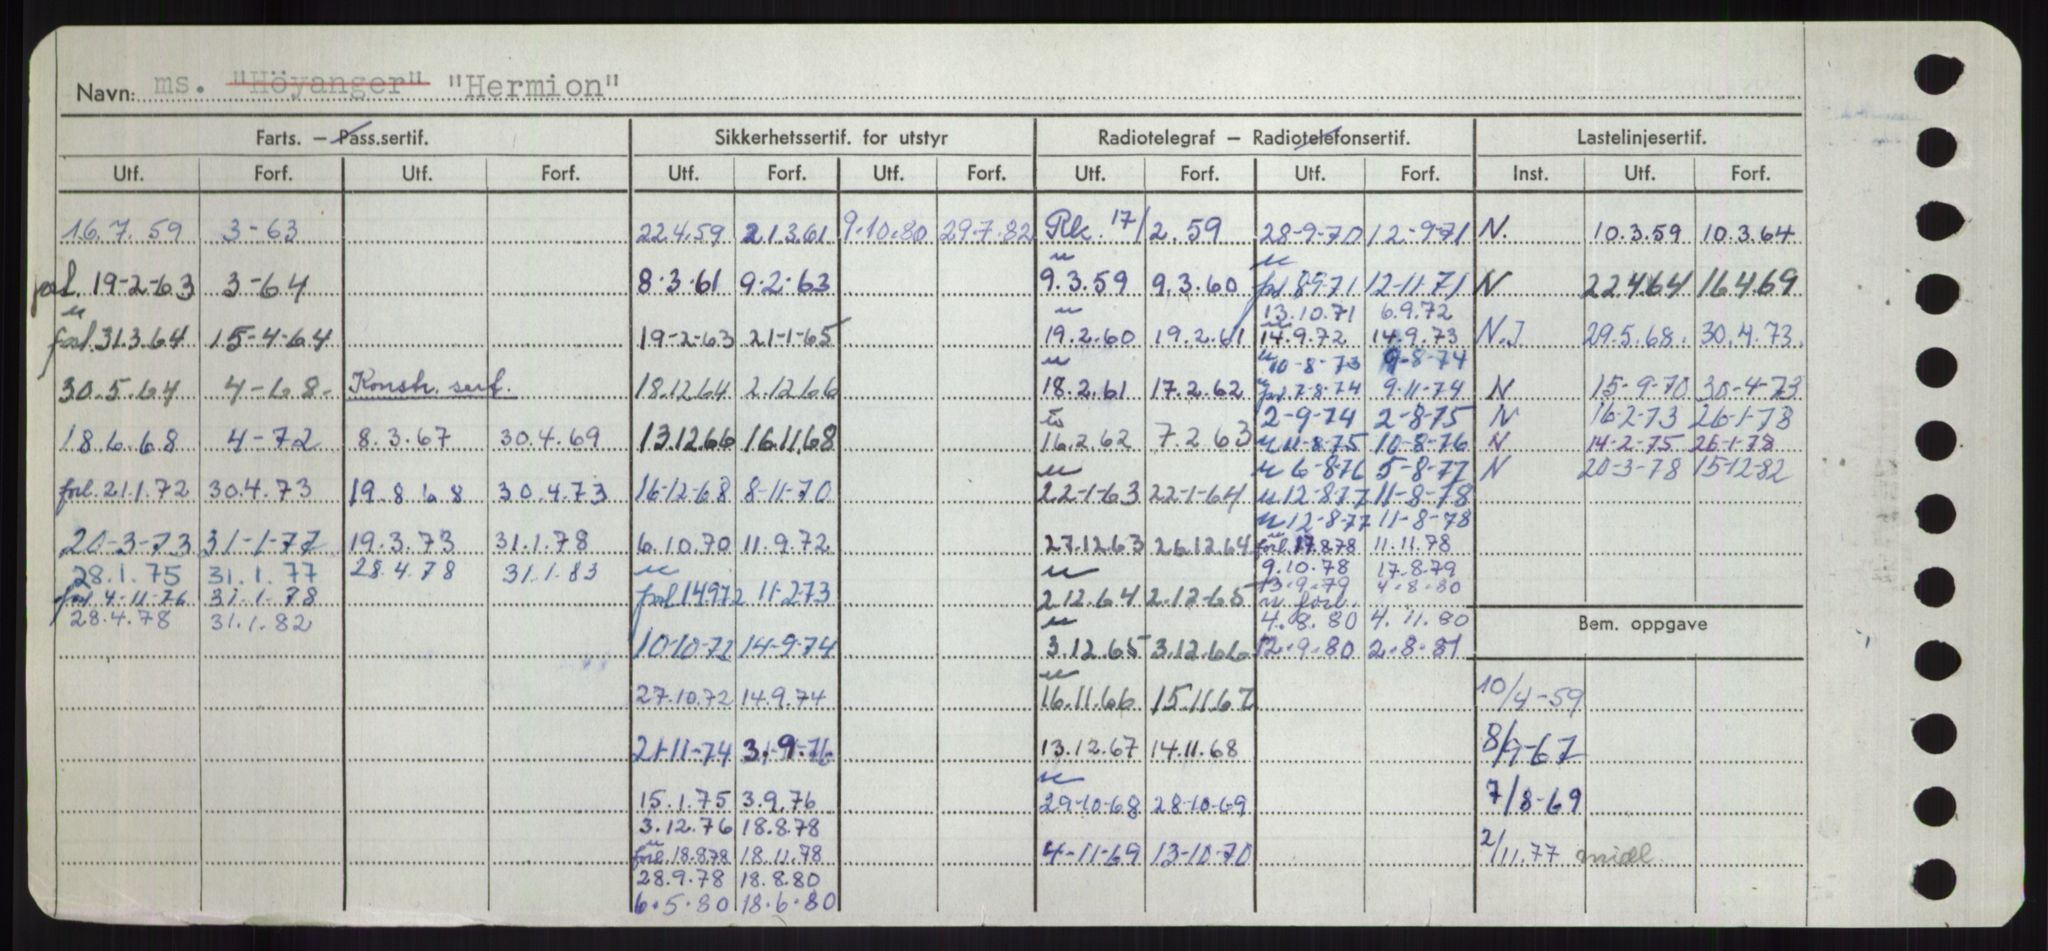 Navn: ms. "Höyanger" "Hermion"
Farts. — Pass.sertif. Sikkerhetssertif. for utstyr Radiotelegraf — Radiotelefonsertif. Lastelinjesertif.
Utf. Forf. Utf. Forf. Utf. Forf. Utf. Forf. Utf. Forf. Utf. Forf. Inst. Utf. Forf.
16.7.59 3-63
forl. 19-2-63 3-64
forl. 31.3.64 15-4-64
30.5.64 4-68.
18.6.68 4-72
forl. 21.1.72 30.4.73
20-3-73 31-1-77
28.1.75 31.1.77
forl. 4-11-76 31-1-78
28.4.78 31.1.82
Konstr. sert.
8.3.67 30.4.69
19.8.68 30.4.73
19.3.73 31.1.78
28.4.78 31.1.83
22.4.59 21.3.61
8.3.61 9.2.63
19-2-63 21-1-65
18.12.64 2.12.66
13.12.66 16.11.68
16-12-68 8-11-70
6.10.70 11.9.72
forl 14.9.72 11-2-73
10-10-72 14-9-74
27.10.72 14.9.74
21-11-74 3.9.76
15.1.75 3.9.76
3.12.76 18.8.78
forl. 18.8.78 18.11.78
28.9.78 18.8.80
6.5.80 18.6.80
9.10.80 29.7.82
Rk. 17/2.59
9.3.59 9.3.60
19.2.60 19.2.61
18.2.61 17.2.62
16.2.62 7.2.63
22-1-63 22-1-64
27.12.63 26.12.64
2.12.64 2-12-65
3.12.65 3.12.66
16.11.66 15.11.67
13.12.67 14.11.68
29-10-68 28-10-69
4-11-69 13-10-70
28-9-70 12-9-71
forl 8-9-71 12-11-71
13.10.71 6.9.72
14.9.72 14.9.73
10-8-73 9-8-74
forl 7-8-74 9-11-74
2-9-74 2-8-75
11-8-75 10-8-76
6-8-76 5-8-77
12-8-77 11-8-78
12-8-77 11-8-78
forl. 17.8.78 11.11.78
9.10.78 17.8.79
13.9.79 4.8.80
forl.
4.8.80 4.11.80
12.9.80 2.8.81
N. 10.3.59 10.3.64
N 22.4.64 16.4.69
N.I 29.5.68. 30.4.73.
N 15-9-70 30-4-73
N 16-2-73 26-1-78
N 14-2-75 26-1-78
N 20-3-78 15-12-82
Bem. oppgave
10/4-59
8/9-67
7/8-69
2/11.77 midl.